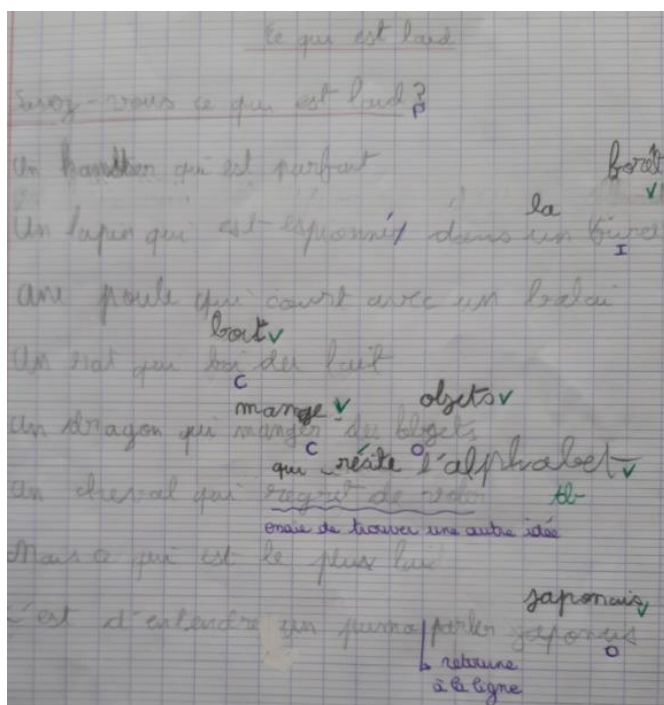 Ce qui est laid
Savez-vous ce qui est laid ?
P
Un qui est parfait
forêt
V
la
Un lapin qui est espionné dans un
I
Une poule qui court avec un balai
boit V
Un rat qui boi du lait
C
mange V objets V
Un dragon qui manger des objets
C O
qui récite l'alphabet V
Un cheval qui regret de
tb
essaie de trouver une autre idée
Mais ce qui est le plus lai
japonais V
C'est d'entendre un puma parler japonais
O
retourne
à la ligne